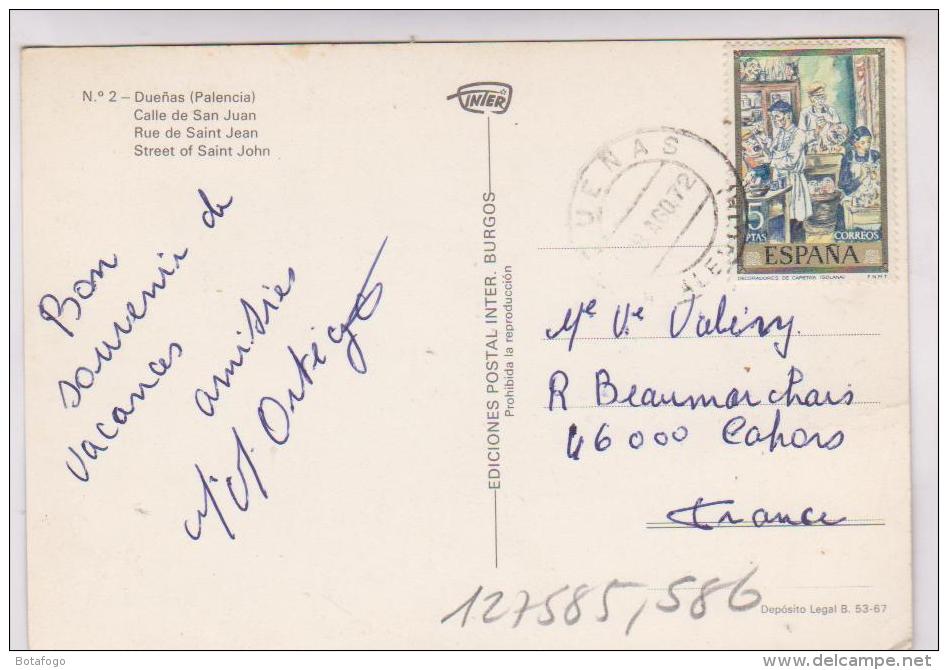 N.º 2 – Dueñas (Palencia)
Calle de San Juan
Rue de Saint Jean
Street of Saint John
Bon
souvenir de
vacances
amitiés
Ortiga
INTER
EDICIONES POSTAL INTER. BURGOS
Prohibida la reproducción
DUEÑAS
AGO.72
5
PTAS
CORREOS
ESPAÑA
DECORADORES DE CARETAS (SOLANA)
F.N.M.T.
Me Ve Valéry.
R Beaumarchais
46000 Cahors
France
127585,586
Depósito Legal B. 53-67
Botafogo
www.delcampe.net